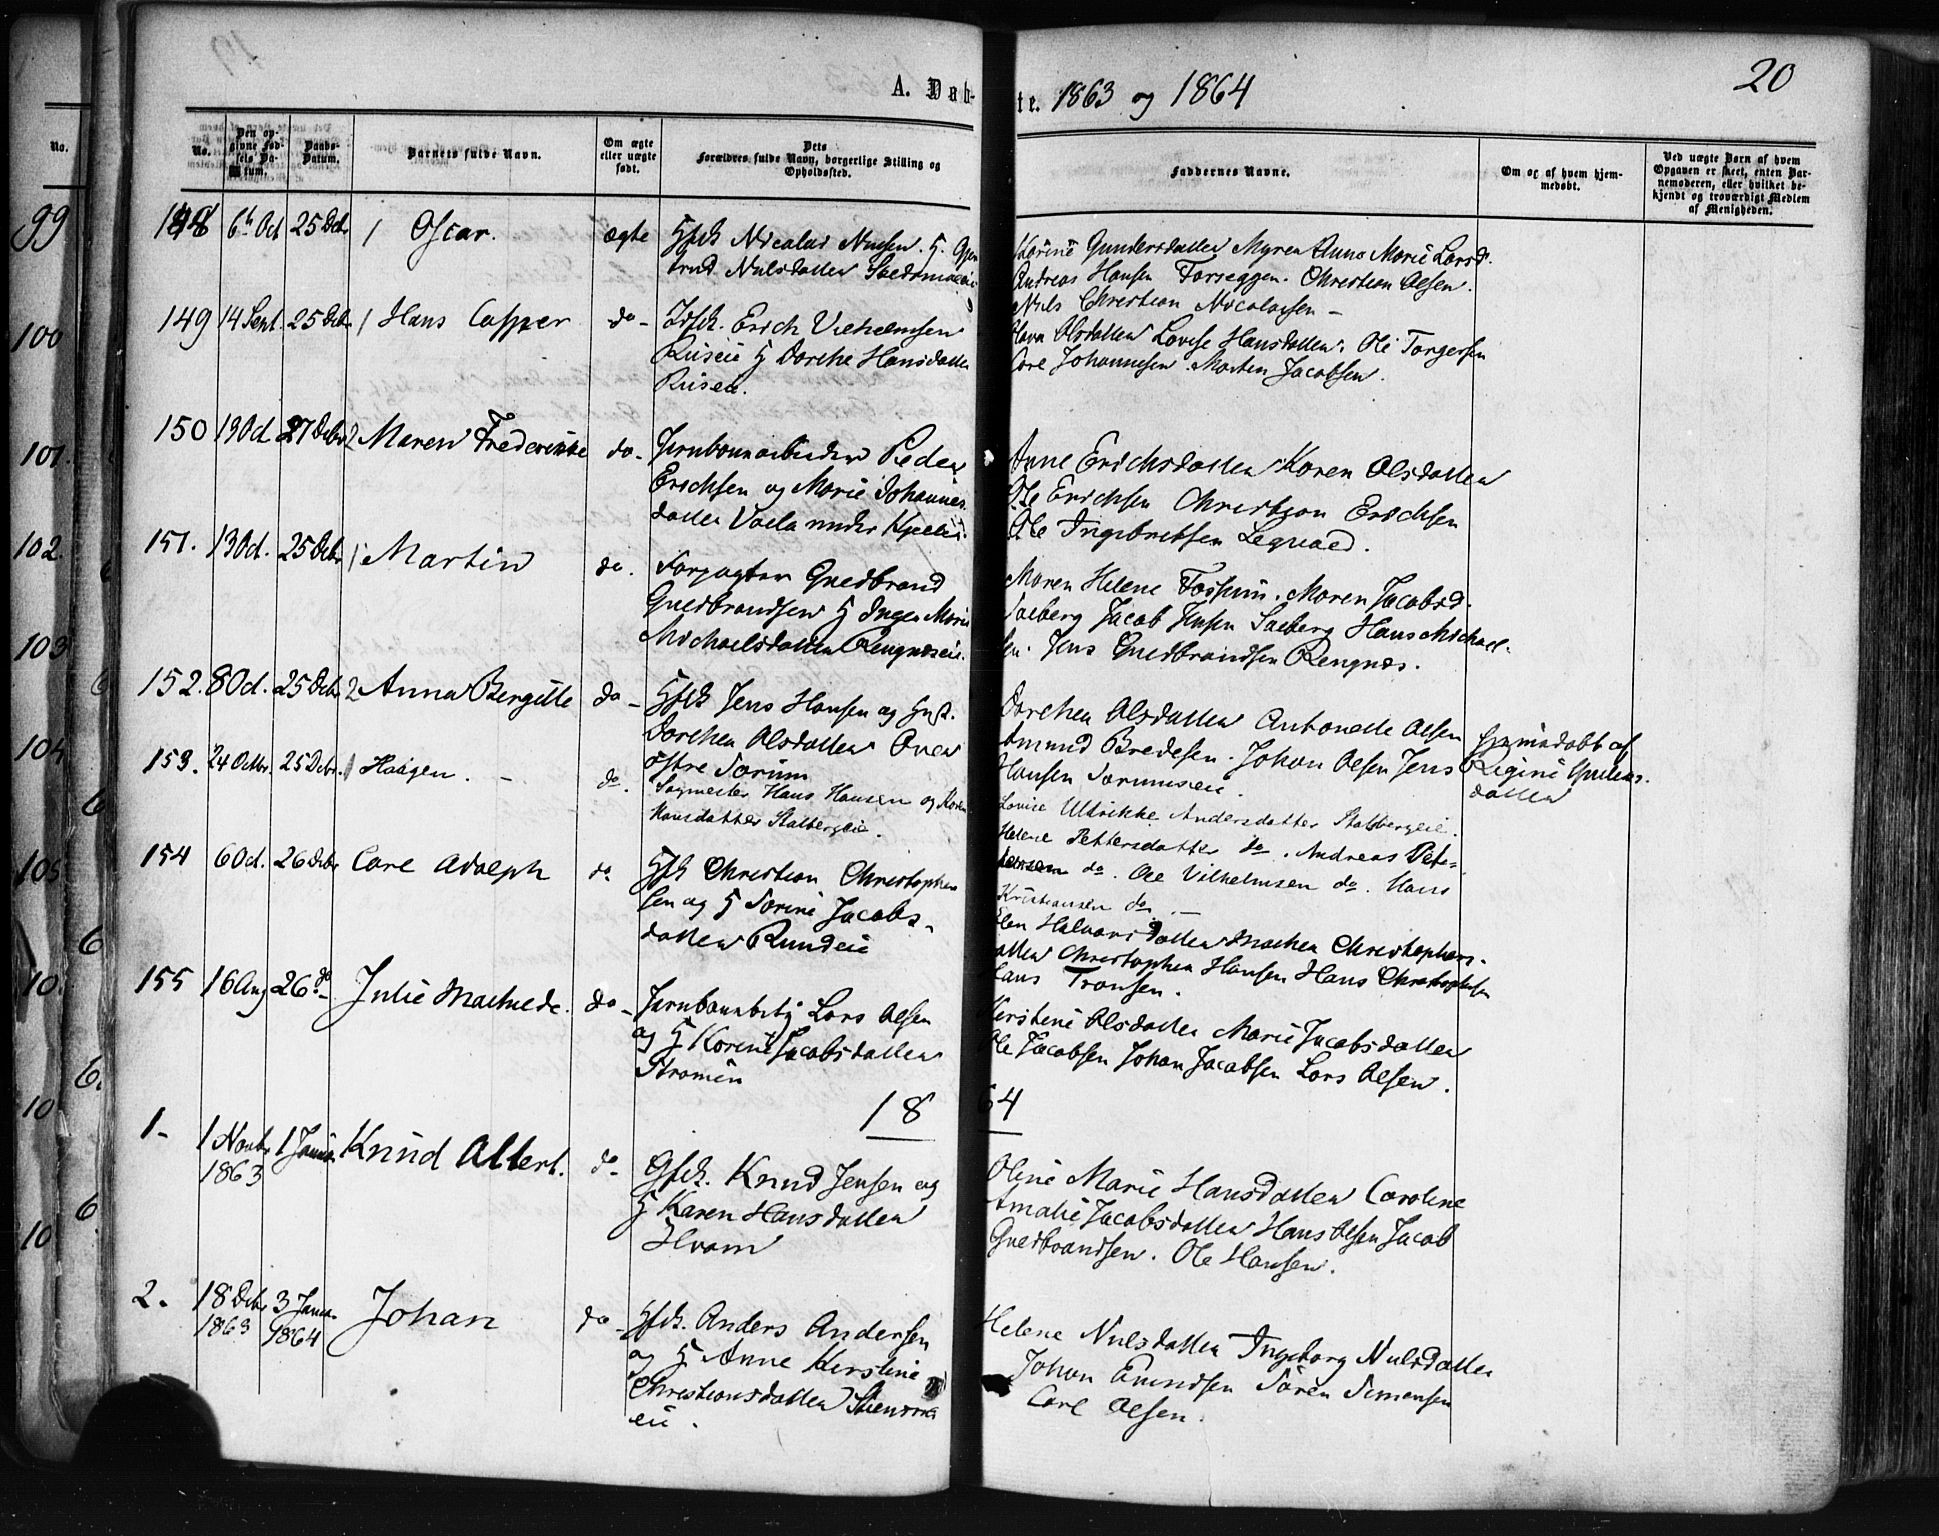 A. Døb-
te. 1863 og 1864
20
No.
No.
Den opgivne Fødsels Datum.
Daabs-Datum.
Barnets fulde Navn.
Om ægte eller uægte født.
Dets Forældres fulde Navn, borgerlige Stilling og Opholdssted.
Faddernes Navne.
Om og af hvem hjemmedøbt.
Ved uægte Børn af hvem Opgaven er skeet, enten Barnemoderen, eller hvilket bekjendt og troværdigt Medlem af Menigheden.
99
100
101.
102.
103
104
105
10
10
10
148 6 Oct 25 Decb 1 Oscar. ægte
Nicolai
trud Nilsdatter
Karine Gundersdatter Myren Anne Marie Larsd.
Andreas Hansen Forseggen. Christian Olsen.
Niels Christian Nicolaisen –
149 14 Sept. 25 Decb 1 Hans Casper do –
Erich Vilhelmsen
Riiseie G Dorthe Hansdatter
Riiseie.
Olsdatter Lovise Hansdatter. Ole Torgersen
Carl Johannesen. Morten Jacobsen.
150 19 Oct 27 Decbr 2 Maren Frederikke do –
Jernbanearbeider Peder
Erichsen og Marie Johannes
datter Vaela under Kjelle
Anne Erichsdatter Karen Olsdatter
Ole Erichsen Christian Erichsen
Ole Ingebretsen Legvold.
151. 13 Oct. 25 Decbr 1 Martin do.
Forpagter Guldbrand
Guldbrandsen G Inger Marie
Michaelsdatter Rengnæseie.
Maren Helene Fossum. Maren Jacobsd.
Jacob Jensen Hans Michael-
sen. Jens Guldbrandsen Rengnæs.
152. 8 Oct. 25 Decb 2 Anna Bergitte do –
Jens Hansen og Hust.
Dorthea Olsdatter
østre Sørum
Dorthea Olsdatter Antonette Olsen
Amund Bredesen. Johan Olsen Jens
Hansen Sørumseie.
hjemmedøbt af
Regine
datter
153. 24 Octbr. 25 Decbr. 1 Haagen. – do.
Sagmester Hans Hansen og Karen
Hansdatter Stalbergeie.
Lovise Ulrikke Andersdatter Stalbergeie.
Helene Pettersdatter do. Andreas Pet-
tersen do. Ole Vilhelmsen do. Hans
Kristiansen do. –
154 6 Oct. 26 Decbr Carl Adolph do
Christian Christopher
sen og G Sørine Jacobs-
datter Rundeie
Halvorsdatter Mathea Christophers-
datter Christopher Hansen Hans Christophersen
Hans Tronsen.
155 16 Aug 26 do – Julie Mathilde. do –
Lars Olsen
og G Karine Jacobsdatter
Strømen
Kirstine Olsdatter Marie Jacobsdatter
Ole Jacobsen Johan Jacobsen Lars Olsen.
18 64
1 – 1 Novbr 1 Janua Knud Albert. do –
1863
Knud Jensen og
G Karen Hansdatter
Hvam
Oline Marie Hansdatter Caroline
Amalie Jacobsdatter Hans Olsen Jacob
Guldbrandsen. Ole Hansen.
2. 18 Decbr 3 Janua Johan do –
1863 1864
Anders Andersen
og G Anne Kirstine
Christiansdatter
eie.
Helene Nilsdatter Ingeborg Nilsdatter
Johan Søren Simensen
Carl Olsen.